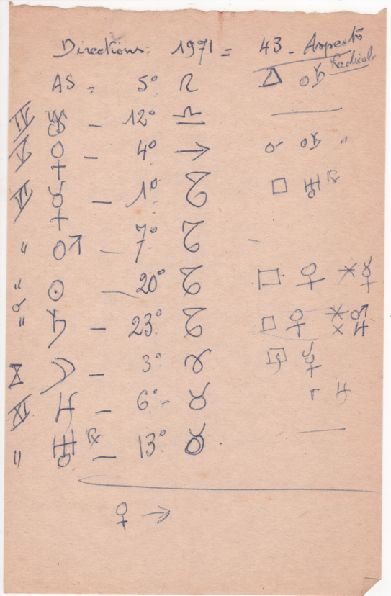 Directions 1971 = 43 - Aspects
Radical
AS = 5° ♌ △
IV — 12° ♎
V ♀ — 4° ♐ "
VI ☿ — 1° □ ♅ ℞
" ♂ — 7°
" ☉ — 20° □ ♀ ⚹ ☿
" ♄ — 23° □ ♀ ⚹ ♂ ⚹ ♃
X ☽ — 3° ♈ □ ☿
XI ♃ — 6° ♉ ♃
" ♅ ℞ — 13° ♉
♀ →